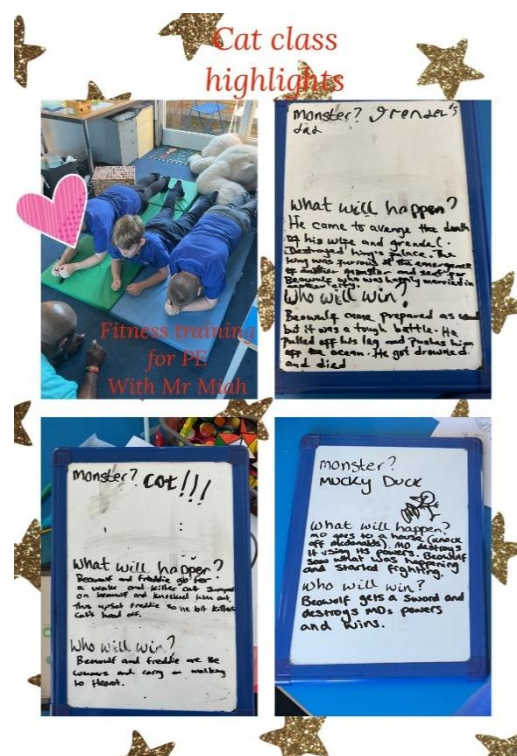 Cat class
highlights
Fitness training
for PE
With Mr Miah
monster? Grendel's
dad
What will happen?
He came to avenge the death
of his wife and grendel.
Destroyed king's palace. The
king was furious at the emergence
of another monster and sent for
Beowulf who was happily married in
another city.
Who will win?
Beowulf came prepared as usual
but it was a tough battle. He
pulled off his leg and pushes him
off the ocean. He got drowned
and died
monster? cat!!!
What will happen?
Beowulf and freddie go for
a walk and killer cat jumped
on beowulf and knocked him out.
This upset freddie so he bit killer
cat's head off.
Who will win?
Beowulf and freddie are the
winners and carry on walking
to Heorot.
monster?
MUCKY DUCK
What will happen?
MD goes to a house (knock
off mcdonalds). MD destroys
it using its powers. Beowulf
saw what was happening
and started fighting.
Who will win?
Beowulf gets a sword and
destroys MDs powers
and wins.